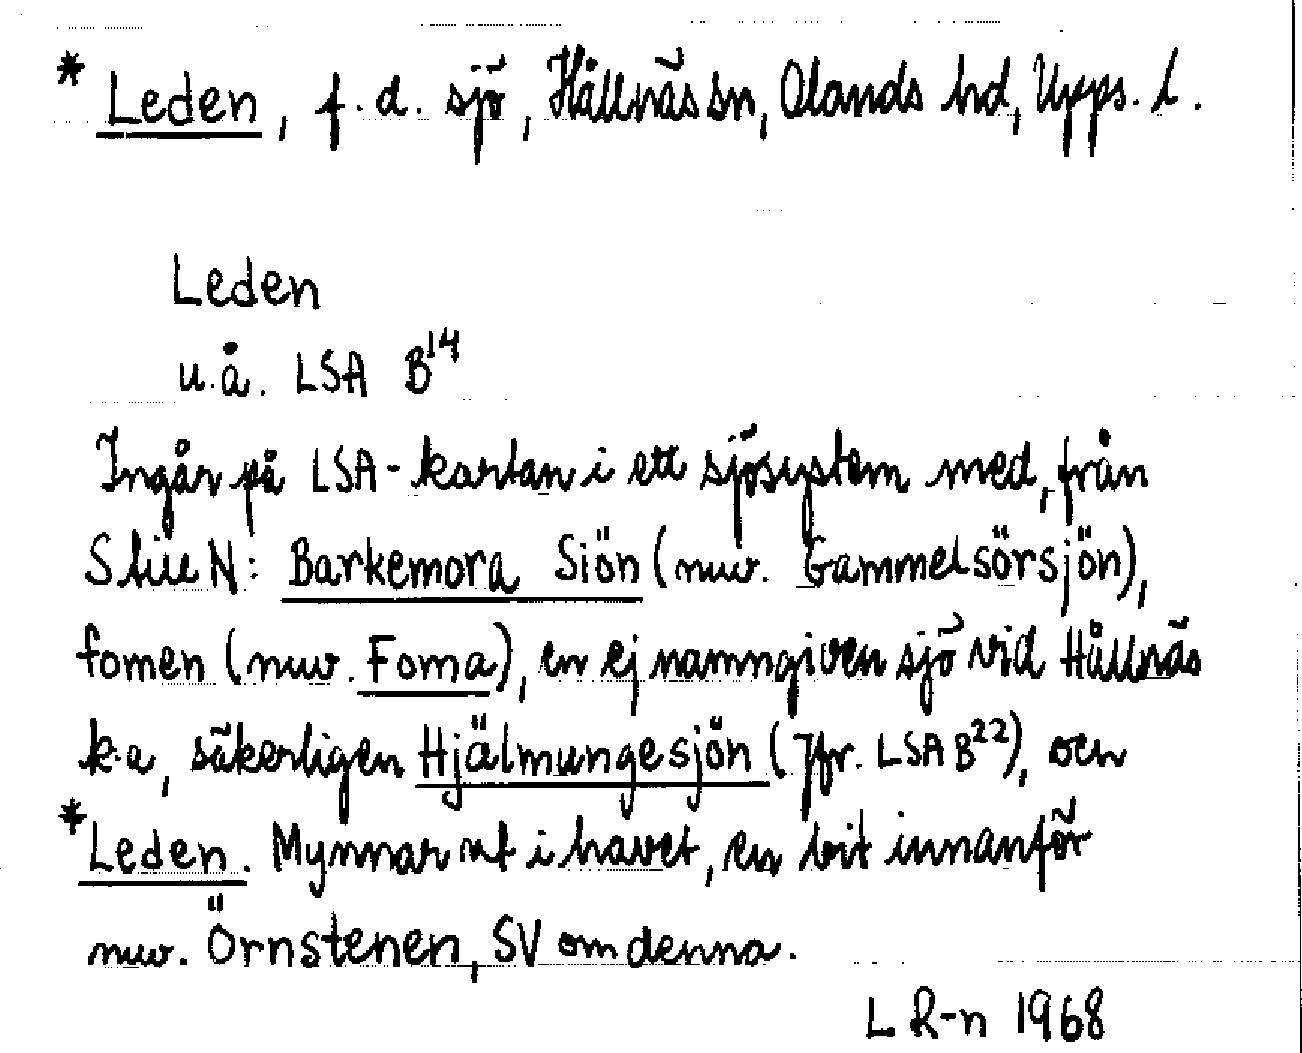 * Leden, f.d. sjö, Hållnäs sn, Olands hd, Upps. l.
Leden
u.å. LSA B14
Ingår på LSA-kartan i ett sjösystem med, från
S till N: Barkemora Siön (nuv. Gammelsörsjön),
fomen (nuv. Foma), en ej namngiven sjö vid Hållnäs
k:a, säkerligen Hjälmungesjön (Jfr. LSA B22), och
*Leden. Mynnar ut i havet, en bit innanför
nuv. Örnstenen, SV om denna.
L R-n 1968